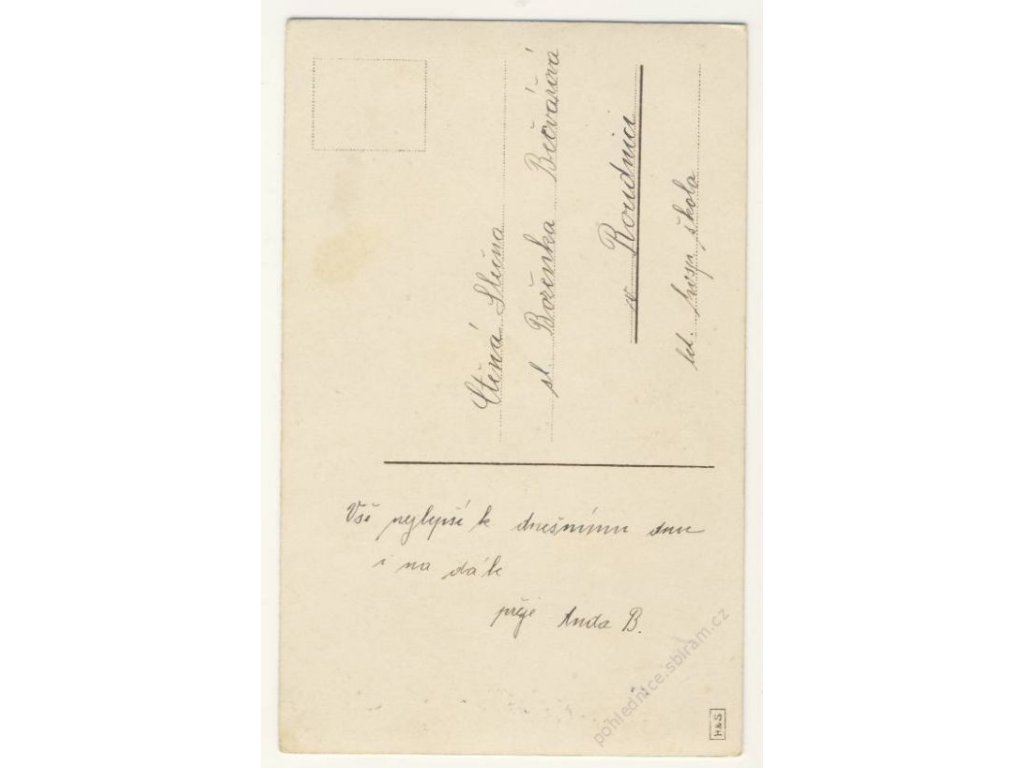 Ctěná Slečna
sl. Boženka Bečvářová
v Roudnici
let. hosp. škola
Vše nejlepší k dnešnímu dnu
i na dále
přeje Anda B.
pohlednice.sbiram.cz
H&S